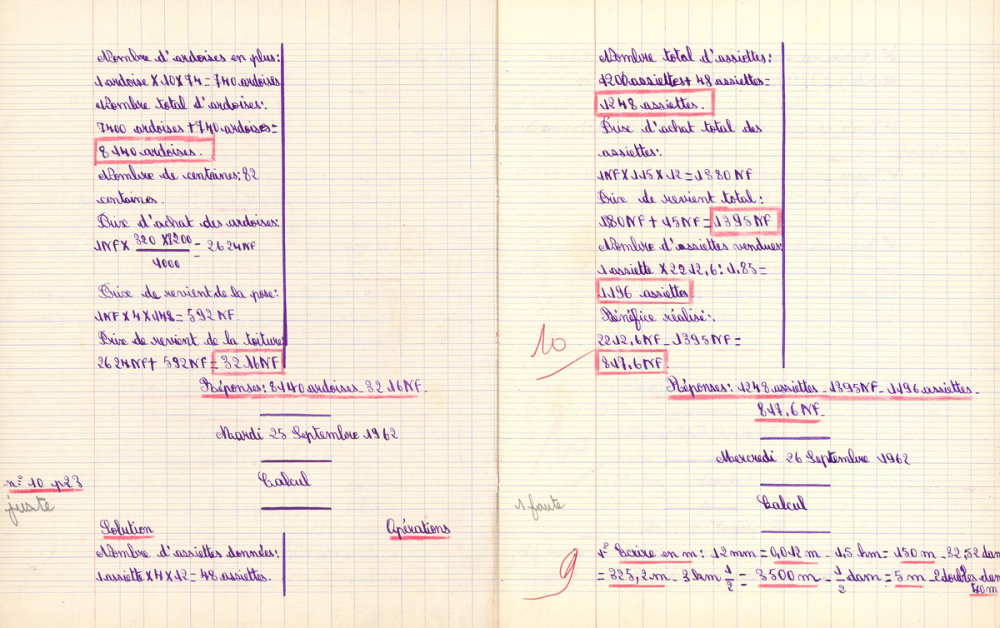 Nombre d'ardoises en plus:
1 ardoise × 10 × 74 = 740 ardoises
Nombre total d'ardoises:
7400 ardoises + 740 ardoises =
8 140 ardoises.
Nombre de centaines: 82
centaines
Prix d'achat des ardoises
1NF × 320 × 8200 / 1000 = 2624NF
Prix de revient de la pose:
1NF × 4 × 148 = 592 NF.
Prix de revient de la toiture
2624NF + 592NF = 3216NF
Réponses: 8140 ardoises _ 3216NF _
Mardi 25 Septembre 1962
n° 10 p23
Calcul
juste
Solution
Opérations
Nombre d'assiettes données:
1 assiette × 4 × 12 = 48 assiettes.
Nombre total d'assiettes:
1200 assiettes + 48 assiettes =
1248 assiettes.
Prix d'achat total des
assiettes:
1NF × 115 × 12 = 1380 NF
Prix de revient total:
1380NF + 15NF = 1395NF
Nombre d'assiettes vendues
1 assiette × 2212,6 : 1,85 =
1196 assiettes
Bénéfice réalisé:
2212,6NF _ 1395NF =
817,6NF
10
Réponses: 1248 assiettes _ 1395NF _ 1196 assiettes _
817,6NF
Mercredi 26 Septembre 1962
1 faute
Calcul
9
1° Ecrire en m: 12 mm = 0,012 m _ 1,5 hm = 150 m _ 32,52 dam
= 325,2 m _ 3 km 1/2 = 3500 m _ 1/2 dam = 5 m _ 2 doubles dam
40 m